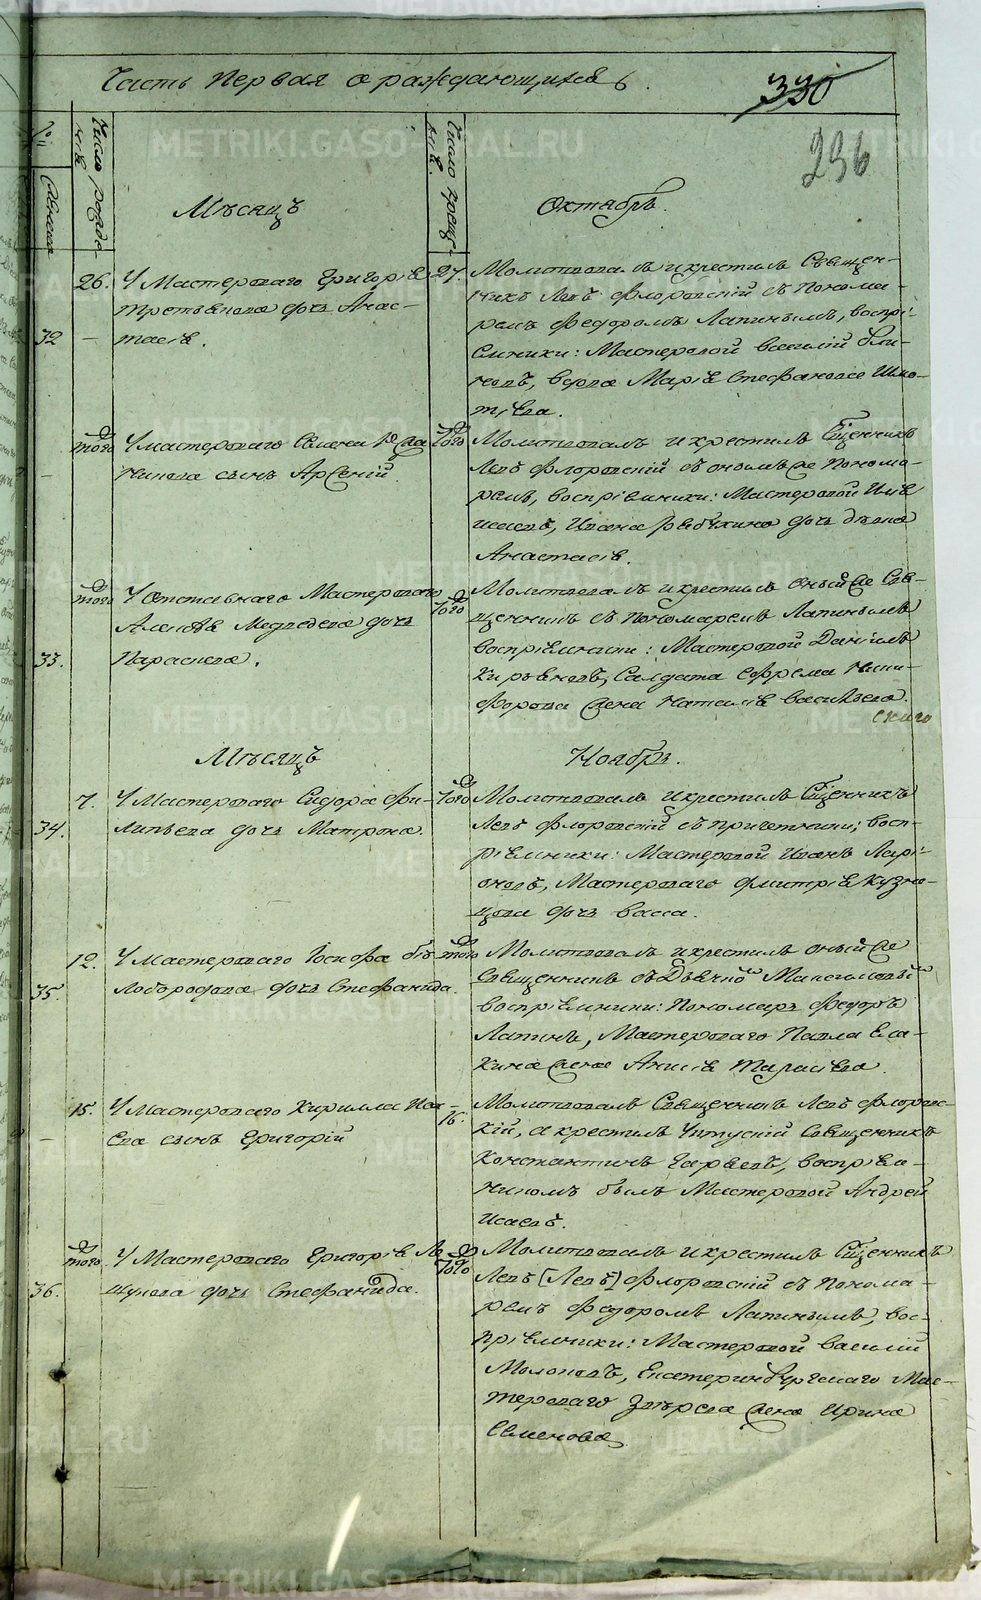 Часть Первая о раждающихся
330
296
№
Женска
Число рожде-
нiя.
Мѣсяцъ
Число крещ-
нiя.
Октябрь.
32
26.
У Мастероваго Григорiя
Третьякова дочь Анас-
тасiя.
27.
Молитвовалъ и крестилъ Священ-
никъ Левъ Флоровскiй съ Понома-
ремъ Федоромъ Лапинымъ, воспрi-
емники: Мастеровой Василiй
вдова Марiя Стефанова
того
У мастероваго Семена
сынъ Арсенiй.
того
Молитвовалъ и крестилъ Священникъ
Левъ Флоровскiй съ онымъ же Понома-
ремъ, воспрiемники: Мастеровой Илiя
Исаевъ, Ивана дочь дѣвка
Анастасiя.
33.
того
У отставнаго Мастероваго
Алексѣя Медведева дочь
Параскева.
того
Молитвовалъ и крестилъ оный же Свя-
щенникъ съ Пономаремъ Лапинымъ
воспрiемники: Мастеровой Данiилъ
Солдата Ефрема Ники-
форова жена Наталiя Васильева.
Мѣсяцъ
Ноябрь.
34.
7.
У Мастероваго Сидора Фи-
липьева дочь Матрона.
того
Молитвовалъ и крестилъ Священникъ
Левъ Флоровскiй съ причетники; восп-
рiемники: Мастеровой Иванъ Ларi-
оновъ, Мастероваго Дмитрiя Кузне-
цова дочь Васса.
35.
12.
У Мастероваго Iосифа Бѣ-
лобородова дочь Стефанида.
того
Молитвовалъ и крестилъ оный же
Священникъ съ Дьячкомъ Максимовымъ
воспрiемники: Пономарь Федоръ
Лапинъ, Мастероваго Павла Ела-
кина жена Анисiя Тарасiева.
15.
У Мастероваго Кирилла Иса-
ева сынъ Григорiй
16.
Молитвовалъ Священникъ Левъ Флоровс-
кiй, а крестилъ Священникъ
Константинъ воспрiем-
никомъ былъ Мастеровой Андрей
Исаевъ.
36.
того
У Мастероваго Григорiя Ля-
гушкова дочь Стефанида.
того
Молитвовалъ и крестилъ Священникъ
Левъ [Левъ] Флоровскiй съ Понома-
ремъ Федоромъ Лапинымъ, вос-
прiемники: Мастеровой Василiй
Молоковъ, Екатеринбургскаго Мас-
тероваго Звѣрева жена Ирина
Семенова.